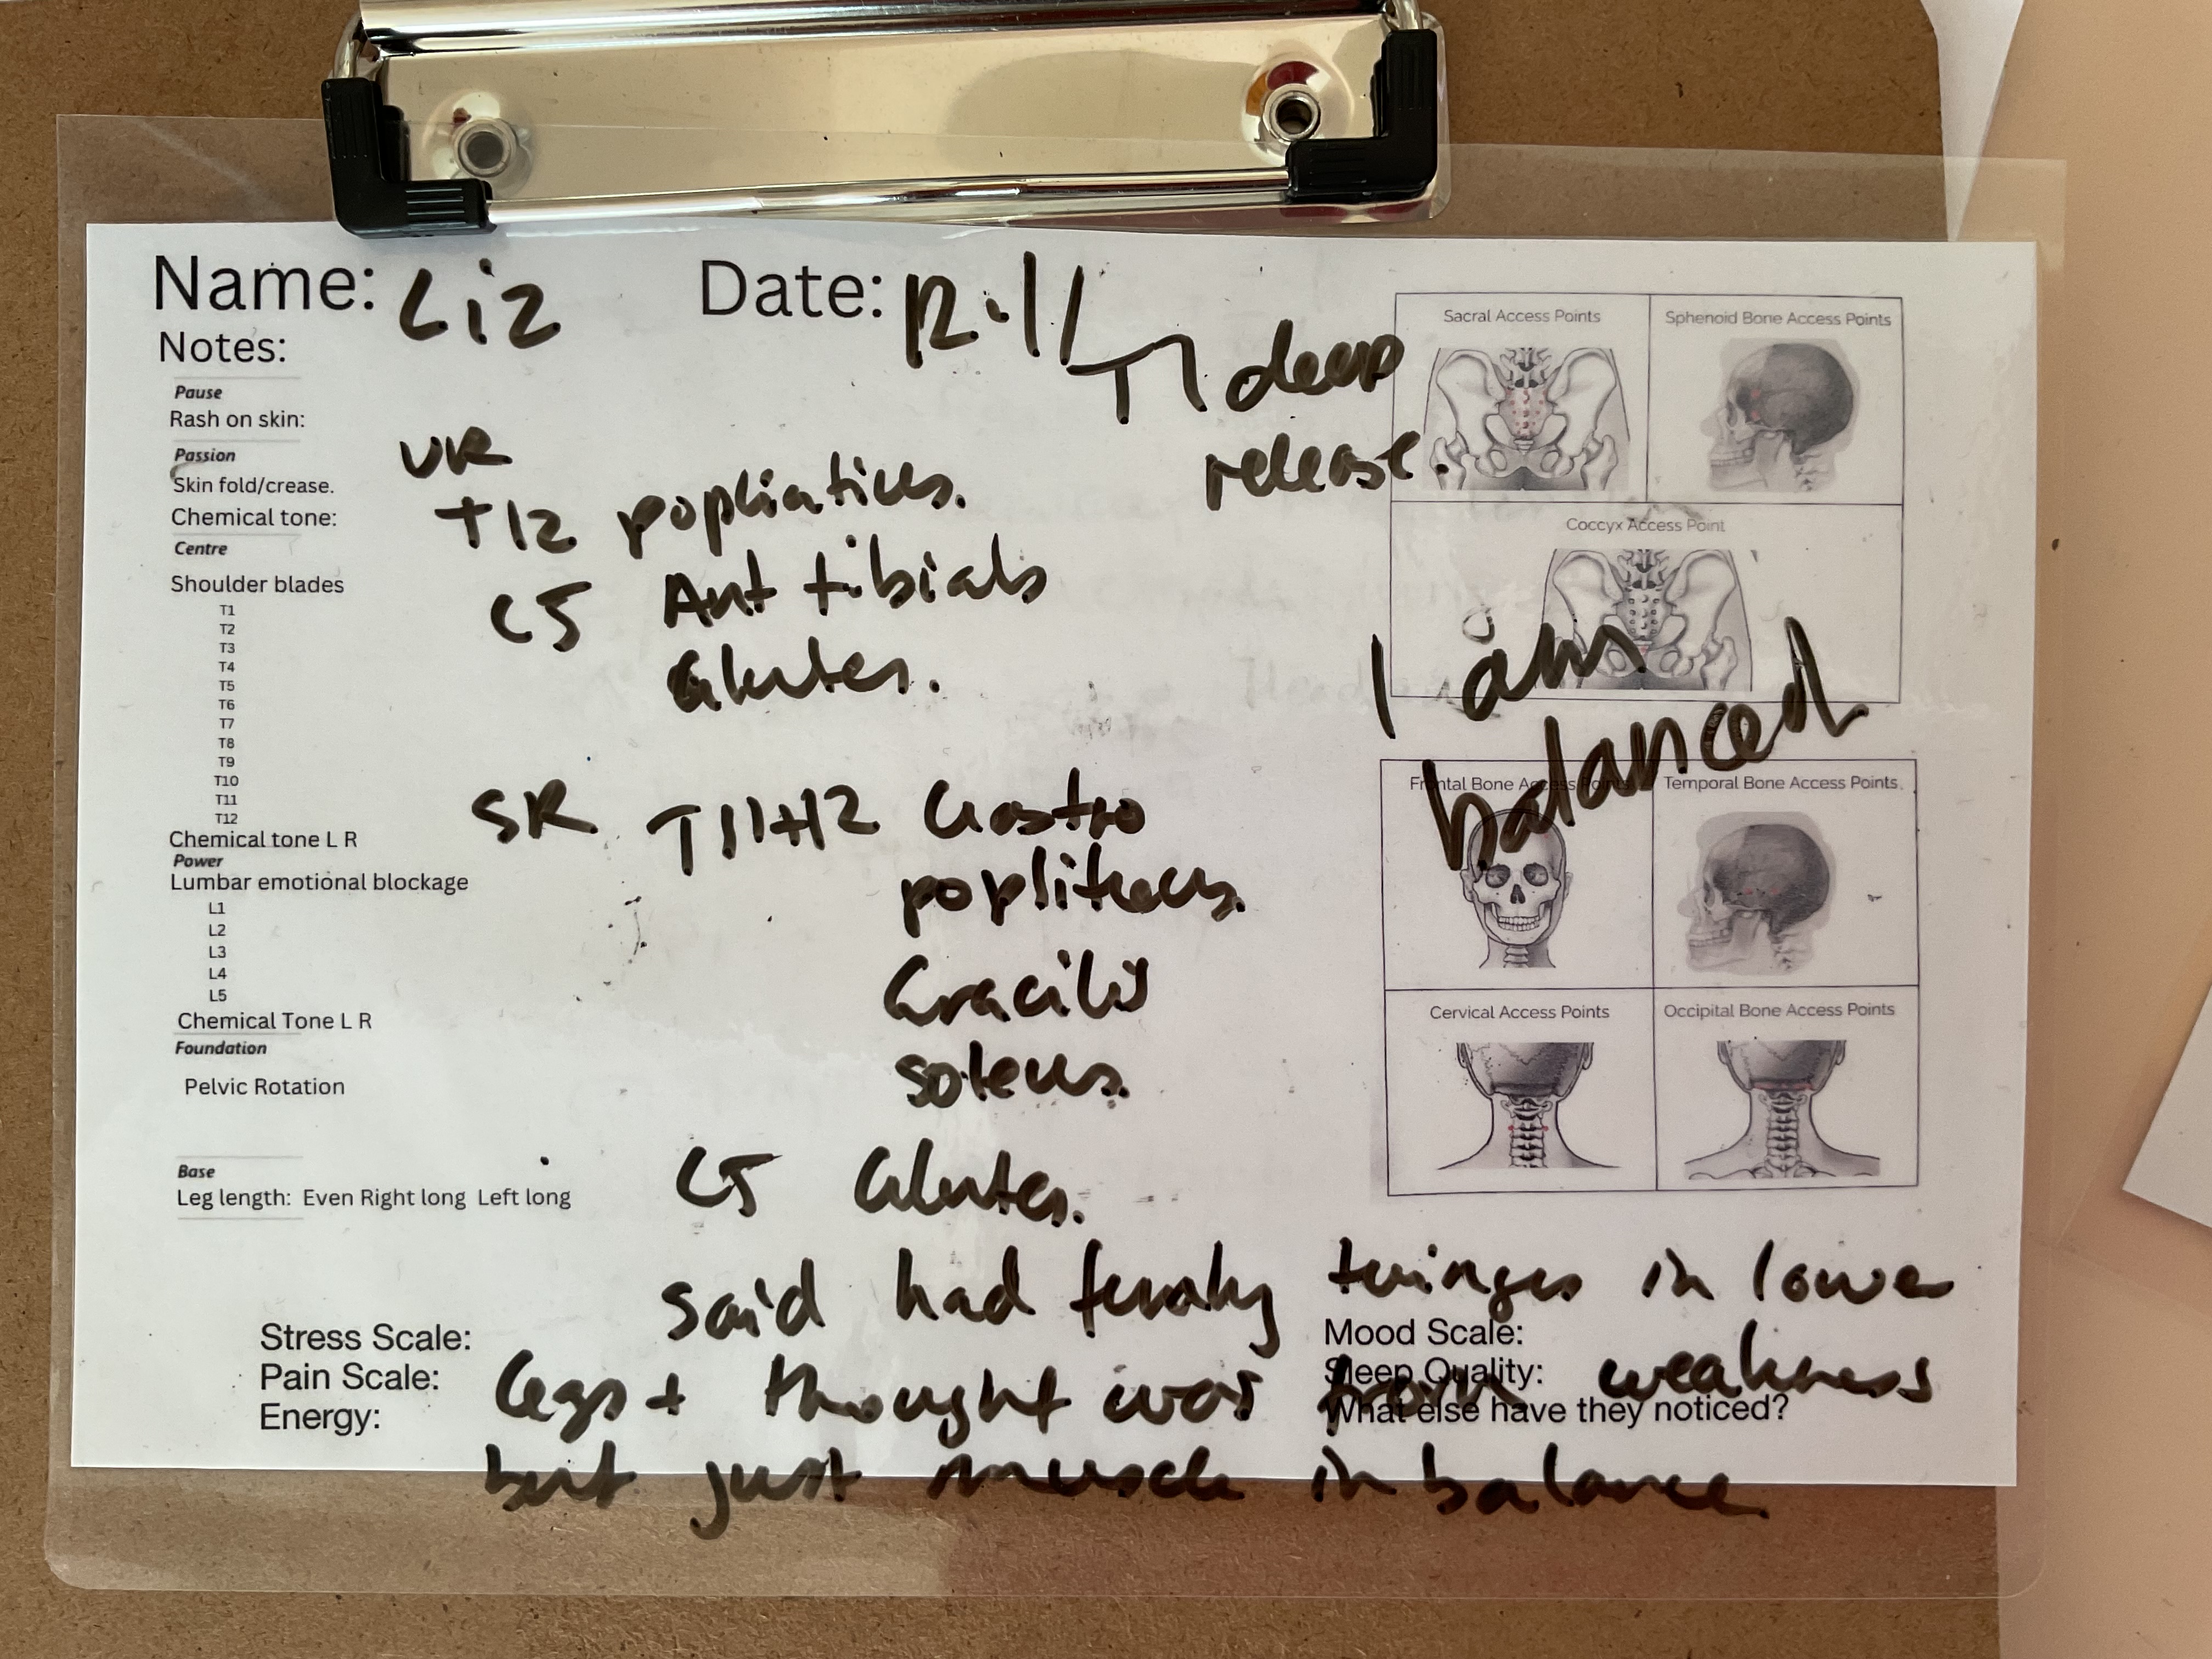 Name: Liz Date: 12.11
Notes:
T1 deep
release.
Pause
Rash on skin:
Passion
Skin fold/crease.
Chemical tone:
Centre
Shoulder blades
T1
T2
T3
T4
T5
T6
T7
T8
T9
T10
T11
T12
Chemical tone L R
Power
Lumbar emotional blockage
L1
L2
L3
L4
L5
Chemical Tone L R
Foundation
Pelvic Rotation
Base
Leg length: Even Right long Left long
UR
T12
C5 Ant tibials
Glutes.
SR T11+12 Gastro
popliteus.
Gracilis
soleus.
C5 Glutes.
said had twinges in lower
legs + thought was from weakness
but just muscle inbalance
Stress Scale:
Pain Scale:
Energy:
Mood Scale:
Sleep Quality:
What else have they noticed?
Sacral Access Points
Sphenoid Bone Access Points
Coccyx Access Point
I am
balanced
Frontal Bone Access Points
Temporal Bone Access Points
Cervical Access Points
Occipital Bone Access Points